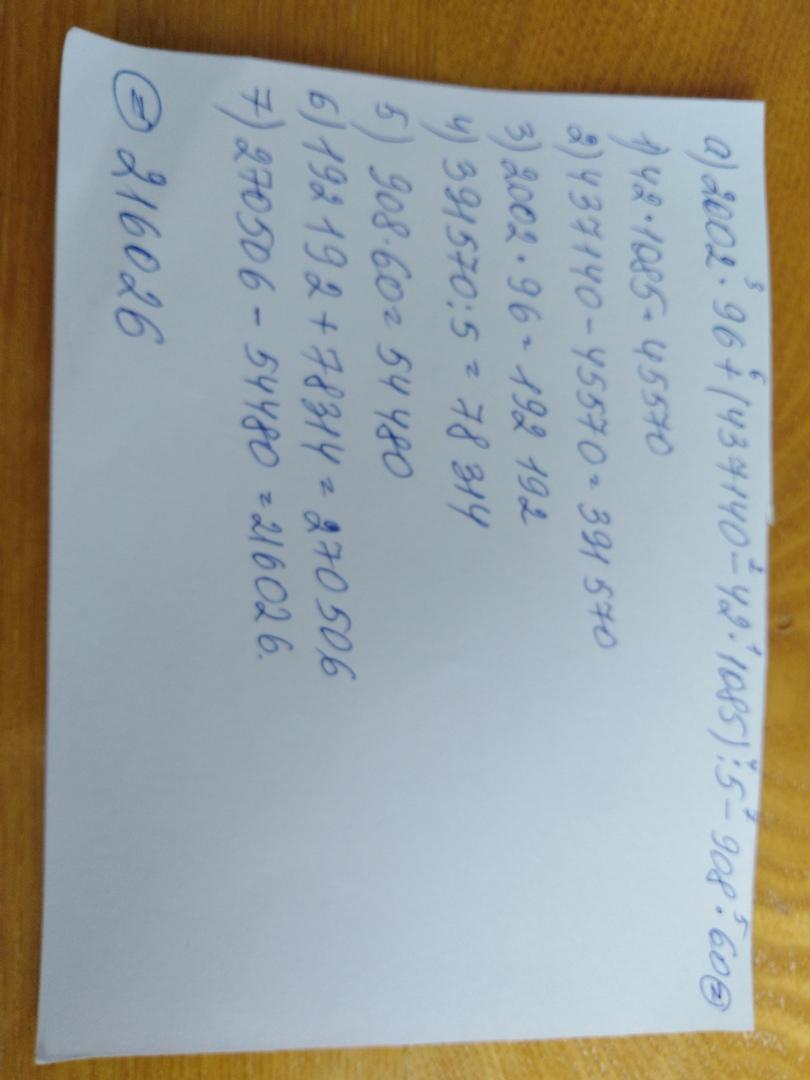 а) 2002 · 96 + (437140 - 42 · 1085) : 5 - 908 · 60 =
1) 42 · 1085 = 45570
2) 437140 - 45570 = 391570
3) 2002 · 96 = 192 192
4) 391570 : 5 = 78 314
5) 908 · 60 = 54 480
6) 192 192 + 78314 = 270 506
7) 270506 - 54480 = 216026.
= 216026